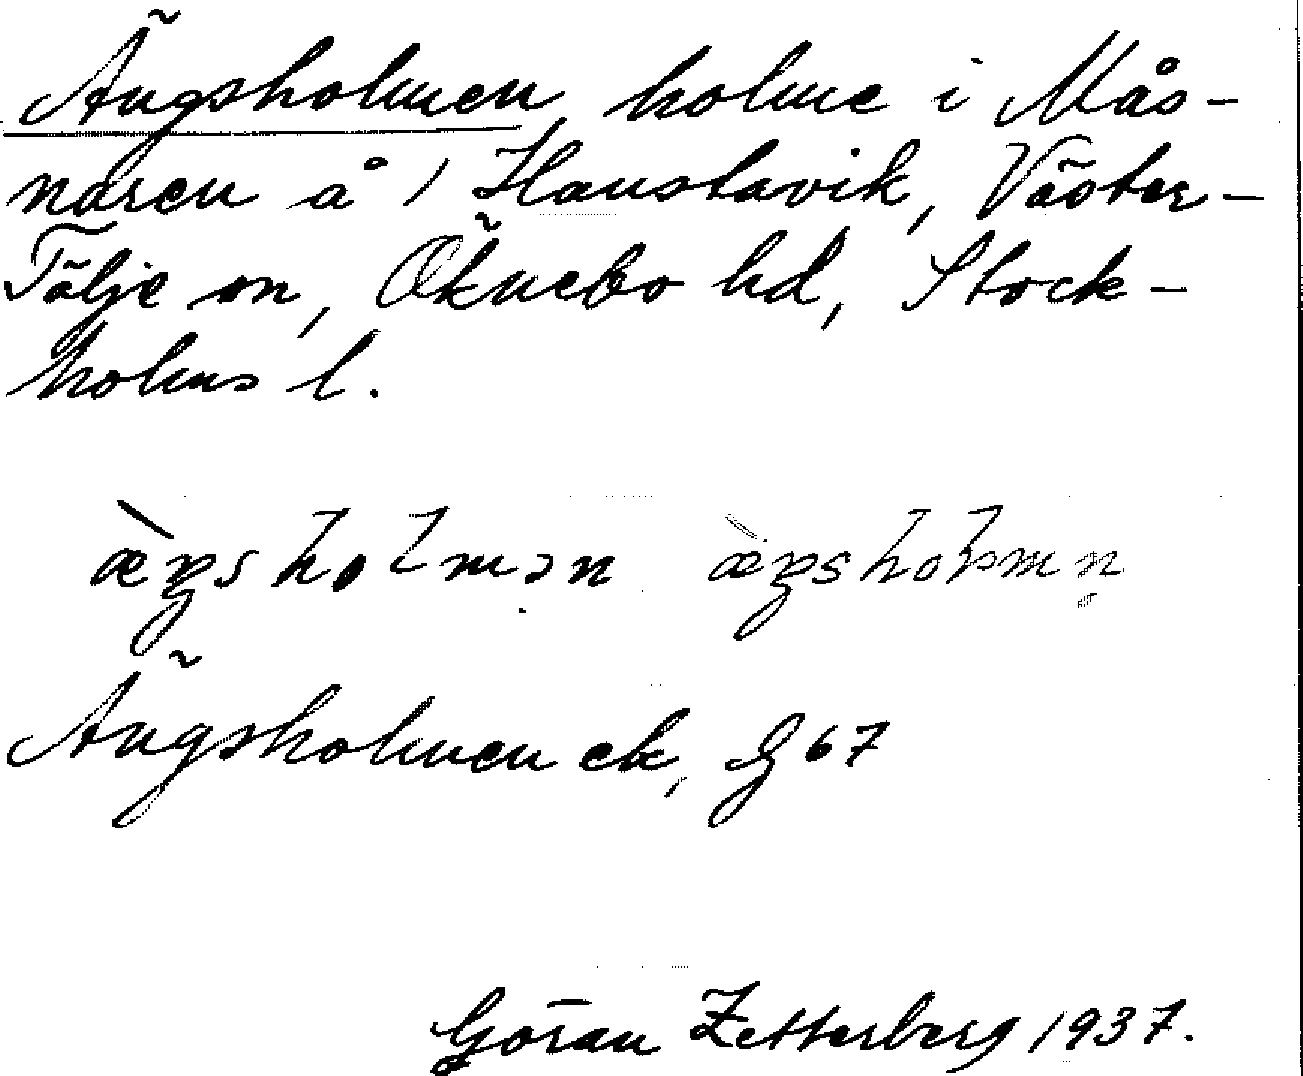 Ängsholmen, holme i Mås-
naren å 1 Hanstavik, Väster-
Tälje sn, Öknebo hd, Stock-
holms l.
Ängsholmen ek, G 67
Göran Zetterberg 1937.